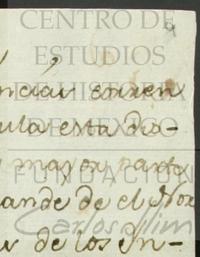 CENTRO DE
ESTUDIOS
DE HISTORIA
DE MEXICO
FUNDACIÓN
Carlos Slim
ula esta dia-
mayor parte
ande de el Nor
de los In-